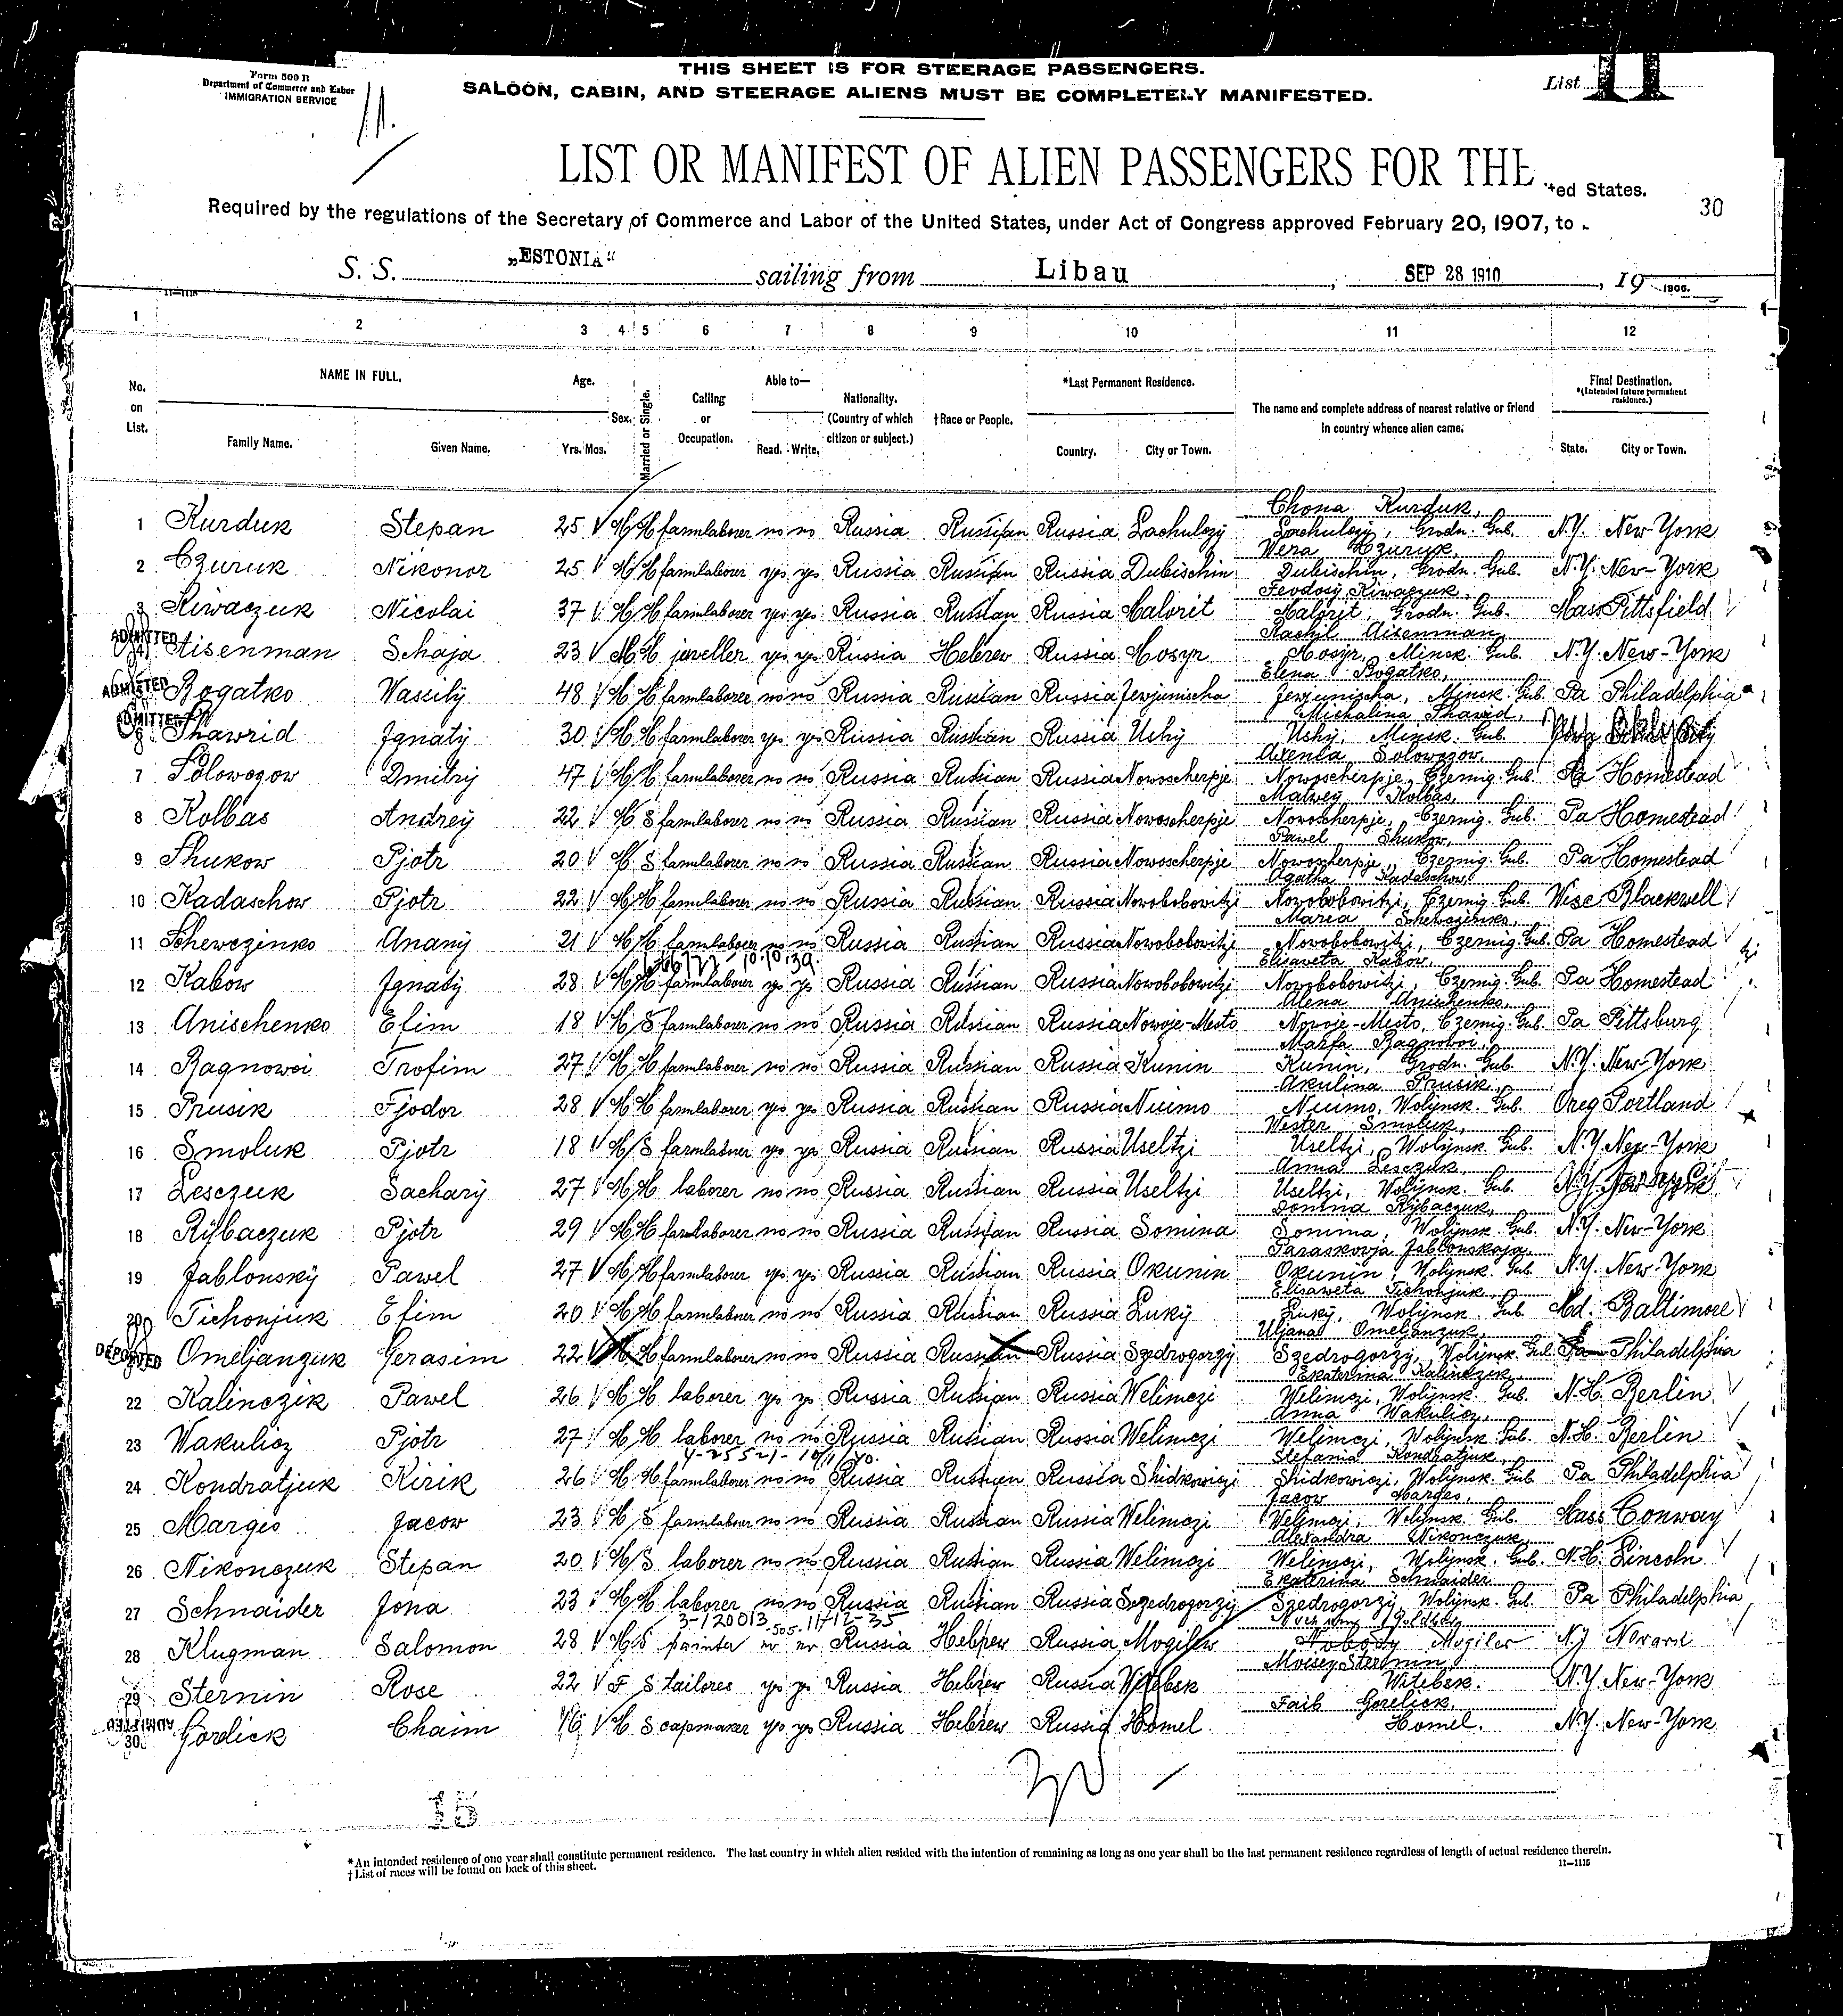 Form 500 B
Department of Commerce and Labor
IMMIGRATION SERVICE
11.
THIS SHEET IS FOR STEERAGE PASSENGERS.
SALOON, CABIN, AND STEERAGE ALIENS MUST BE COMPLETELY MANIFESTED.
List 11
LIST OR MANIFEST OF ALIEN PASSENGERS FOR THE ted States.
Required by the regulations of the Secretary of Commerce and Labor of the United States, under Act of Congress approved February 20, 1907, to
30
S. S. „ESTONIA“ sailing from Libau, SEP 28 1910, 19
1 2 3 4 5 6 7 8 9 10 11 12
No. on List. NAME IN FULL. Family Name. Given Name. Age. Yrs. Mos. Sex. Married or Single. Calling or Occupation. Able to— Read. Write. Nationality. (Country of which citizen or subject.) †Race or People. *Last Permanent Residence. Country. City or Town. The name and complete address of nearest relative or friend in country whence alien came. Final Destination. *(Intended future permanent residence.) State. City or Town.
Chona Kurduk,
1 Kurduk Stepan 25 M M farmlaborer no no Russia Russian Russia Grodn. Gub. N.Y. New-York
Wera Czuruk,
2 Czuruk Nikonor 25 M M farmlaborer yes yes Russia Russian Russia Dubischin Dubischin, Grodn. Gub. N.Y. New-York
Feodosy Kiwaczuk,
3 Kiwaczuk Nicolai 37 M M farmlaborer yes yes Russia Russian Russia Malorit Malorit, Grodn. Gub. Mass Pittsfield
Rachil Aisenman,
ADMITTED Aisenman Schaja 23 M M jeweller yes yes Russia Hebrew Russia Mosyr Mosyr, Minsk. Gub. N.Y. New-York
Elena Bogatko,
ADMITTED Bogatko Wassily 48 M M farmlaborer no no Russia Russian Russia Jewjunischa Jewjunischa, Minsk. Gub. Pa Philadelphia
Michalina Shawrid,
ADMITTED Shawrid Ignaty 30 M M farmlaborer yes yes Russia Russian Russia Ushy Ushy, Minsk. Gub.
Axenia Solowozow,
7 Solowozow Dmitriy 47 M M farmlaborer no no Russia Russian Russia Nowoscherpje Nowoscherpje, Czernig. Gub. Pa Homestead
Matwey Kolbas,
8 Kolbas Andrey 22 M S farmlaborer no no Russia Russian Russia Nowoscherpje Nowoscherpje, Czernig. Gub. Pa Homestead
Pawel Shukow,
9 Shukow Pjotr 20 M S farmlaborer no no Russia Russian Russia Nowoscherpje Nowoscherpje, Czernig. Gub. Pa Homestead
Agatha Kadaschow,
10 Kadaschow Pjotr 22 M M farmlaborer no no Russia Russian Russia Nowobobowitzi Nowobobowitzi, Czernig. Gub. Wisc Blackwell
Maria Schewczinko,
11 Schewczinko Anany 21 M M farmlaborer no no Russia Russian Russia Nowobobowitzi Nowobobowitzi, Czernig. Gub. Pa Homestead
10.10.39. Elisaveta Kabow,
12 Kabow Ignaty 28 M M farmlaborer yes yes Russia Russian Russia Nowobobowitzi Nowobobowitzi, Czernig. Gub. Pa Homestead
Alena Anischenko,
13 Anischenko Efim 18 M S farmlaborer no no Russia Russian Russia Nowoje-Mesto Nowoje-Mesto, Czernig. Gub. Pa Pittsburg
Marfa Bagnowoi,
14 Bagnowoi Trofim 27 M M farmlaborer no no Russia Russian Russia Kunin Kunin, Grodn. Gub. N.Y. New-York
Akulina Prusik,
15 Prusik Fjodor 28 M M farmlaborer yes yes Russia Russian Russia Niuimo Niuimo, Wolynsk. Gub. Oreg Portland
Wester Smoluk,
16 Smoluk Pjotr 18 M S farmlaborer yes yes Russia Russian Russia Useltzi Useltzi, Wolynsk. Gub. N.Y. New-York
Anna Lesczuk,
17 Lesczuk Sachary 27 M M laborer no no Russia Russian Russia Useltzi Useltzi, Wolynsk. Gub. N.Y. New York
Domna Rybaczuk,
18 Rybaczuk Pjotr 29 M M farmlaborer no no Russia Russian Russia Somina Somina, Wolynsk. Gub. N.Y. New-York
Paraskowja Jablonskaja,
19 Jablonsky Pawel 27 M M farmlaborer yes yes Russia Russian Russia Okunin Okunin, Wolynsk. Gub. N.Y. New-York
Elisaweta Tichonjuk,
20 Tichonjuk Efim 20 M M farmlaborer no no Russia Russian Russia Luky Luky, Wolynsk. Gub. Md. Baltimore
Uljana Omeljanzuk,
DEPORTED Omeljanzuk Gerasim 22 M M farmlaborer no no Russia Russian Russia Szedrogorzy Szedrogorzy, Wolynsk. Gub. Pa Philadelphia
Ekaterina Kalinczik,
22 Kalinczik Pawel 26 M M laborer yes yes Russia Russian Russia Welimczi Welimczi, Wolynsk. Gub. N.H. Berlin
Anna Wakulicz,
23 Wakulicz Pjotr 27 M M laborer no no Russia Russian Russia Welimczi Welimczi, Wolynsk. Gub. N.H. Berlin
Stefania Kondratjuk,
24 Kondratjuk Kirik 26 M M farmlaborer no no Russia Russian Russia Shidkowiczi Shidkowiczi, Wolynsk. Gub. Pa Philadelphia
Jacow Marges,
25 Marges Jacow 23 M S farmlaborer no no Russia Russian Russia Welimczi Welimczi, Wolynsk. Gub. Mass Conway
Alexandra Nikonczuk,
26 Nikonczuk Stepan 20 M S laborer no no Russia Russian Russia Welimczi Welimczi, Wolynsk. Gub. N.H. Lincoln
Ekaterina Schnaider
27 Schnaider Jona 23 M M laborer no no Russia Russian Russia Szedrogorzy Szedrogorzy, Wolynsk. Gub. Pa Philadelphia
3-120013 505. 11-12-35 Goldberg
28 Klugman Salomon 28 M S painter Russia Hebrew Russia Mogilew Nobody Mogilev NJ Newark
Moisey Sternin,
29 Sternin Rose 22 F S tailores yes yes Russia Hebrew Russia Witebsk Witebsk. N.Y. New-York
Faib Gorelick,
ADMITTED 30 Gordick Chaim 16 M S capmaker yes yes Russia Hebrew Russia Homel Homel. N.Y. New-York
15
*An intended residence of one year shall constitute permanent residence. The last country in which alien resided with the intention of remaining as long as one year shall be the last permanent residence regardless of length of actual residence therein.
†List of races will be found on back of this sheet.
11—1115